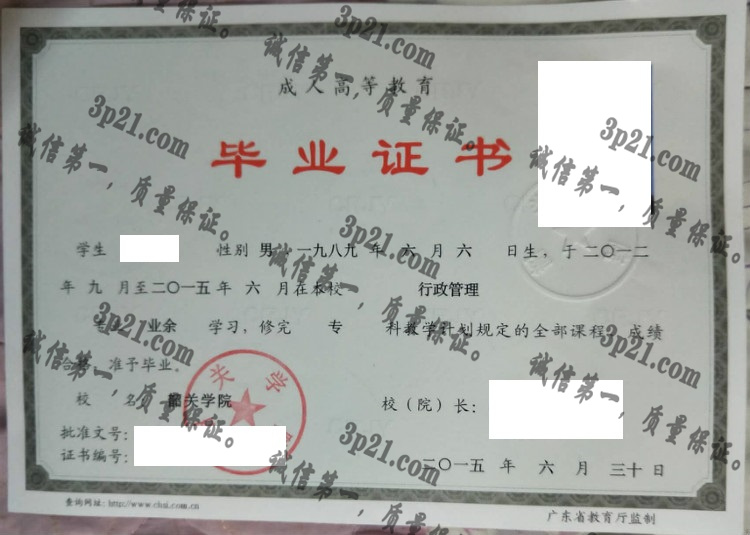 成人高等教育
毕业证书
学生 性别 男 一九八九 年 六 月 六 日生，于二〇一二
年 九 月至二〇一五年 六 月在本校 行政管理
业余 学习，修完 专 科教学计划规定的全部课程，成绩
合格，准予毕业。
校 名：韶关学院
校（院）长：
批准文号：
证书编号：
二〇一五 年 六 月 三十日
查询网址：http://www.chsi.com.cn
广东省教育厅监制
关学
3p21.com
诚信第一，质量保证。
3p21.com
诚信第一，质量保证。
3p21.com
诚信第一，质量保证。
3p21.com
诚信第一，质量保证。
3p21.com
诚信第一，质量保证。
3p21.com
诚信第一，质量保证。
3p21.com
诚信第一，质量保证。